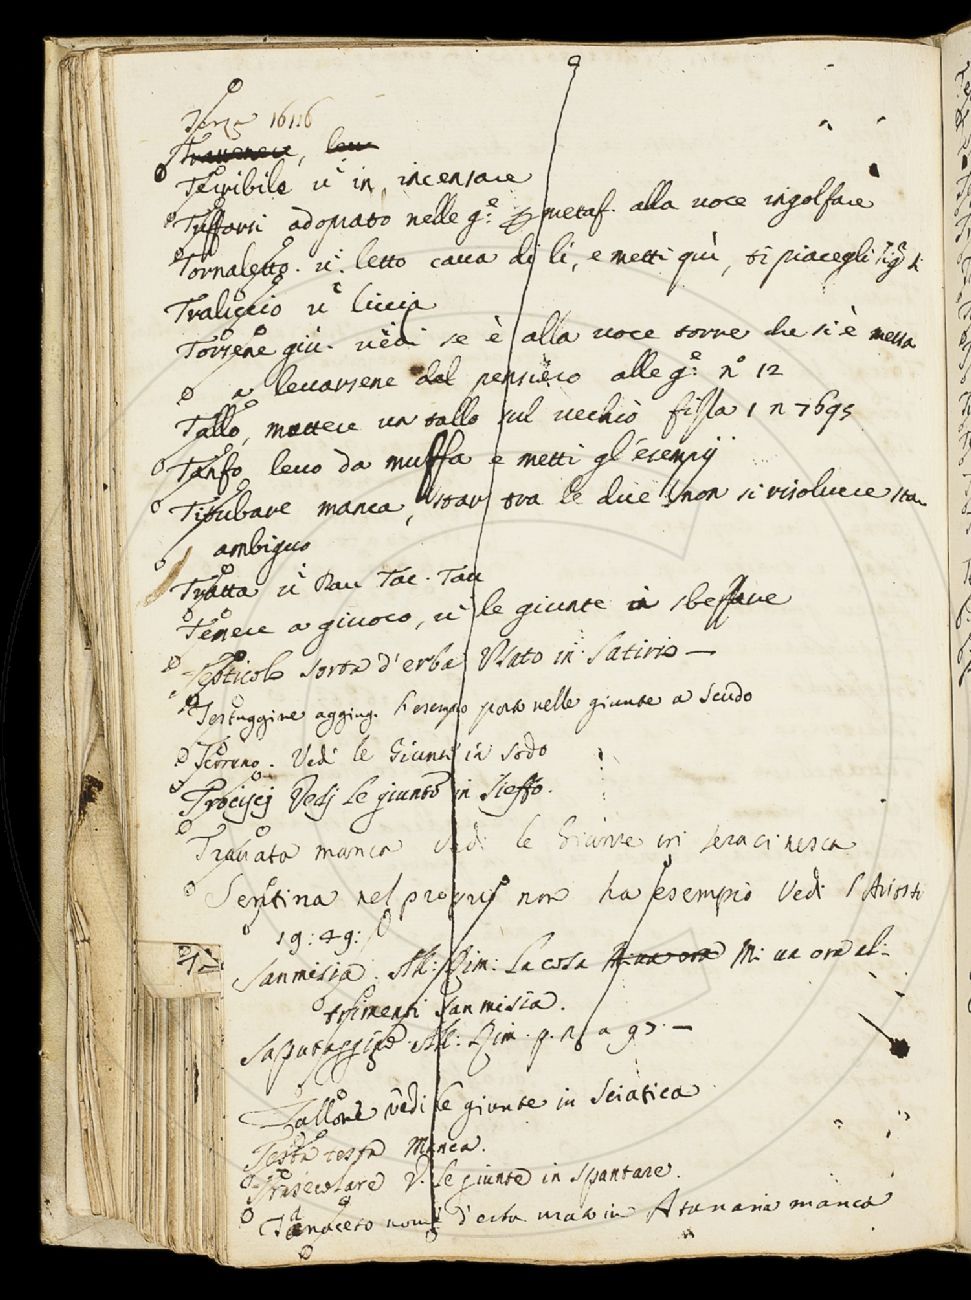 Terz 1616
Terribile v in, incensare
Tuffarsi adoprato nelle g.e p metaf. alla voce ingolfare
Tornaletto. v. letto cava di lì, e metti quì, si piacegli Sig.ri
Traliccio v liccia
Torsene giù. vedi se è alla voce torre che si è messa
a levarsene dal pensiero alle g.e n.o 12
Tallo, mettere un tallo sul vechio fista 1 n 7695
Tanfo, levo da muffa e metti gl'esempij
Titubare manca, star tra le due non si risolvere sta
ambiguo
Tratta v Dav Tac. Tav
Tenere a giuoco, v le giunte in sbeffare
sorta d'erba Usato in Satirio —
Testuggine aggiug. l'esempio posto nelle giunte a Scudo
Terreno. Vedi le Giunte in Sodo
Vedj le giunte in Sieffo.
Travata manca Vedi le Giunte in Seracinesca
Sentina nel proprio non ha esempio Vedi l'Ariosto
19: 49:
Sanmisia. All: Rim: La cosa Mi va ora Mi va ora al:
trimenti Sanmisia.
Saputaggine All: Rim. p. n. a 97. —
Tallone vedi le giunte in Sciatica
Testa testa Manca.
Trasecolare V. le giunte in Spantare.
Tanaceto nome d'erba usato in Atanaria manca